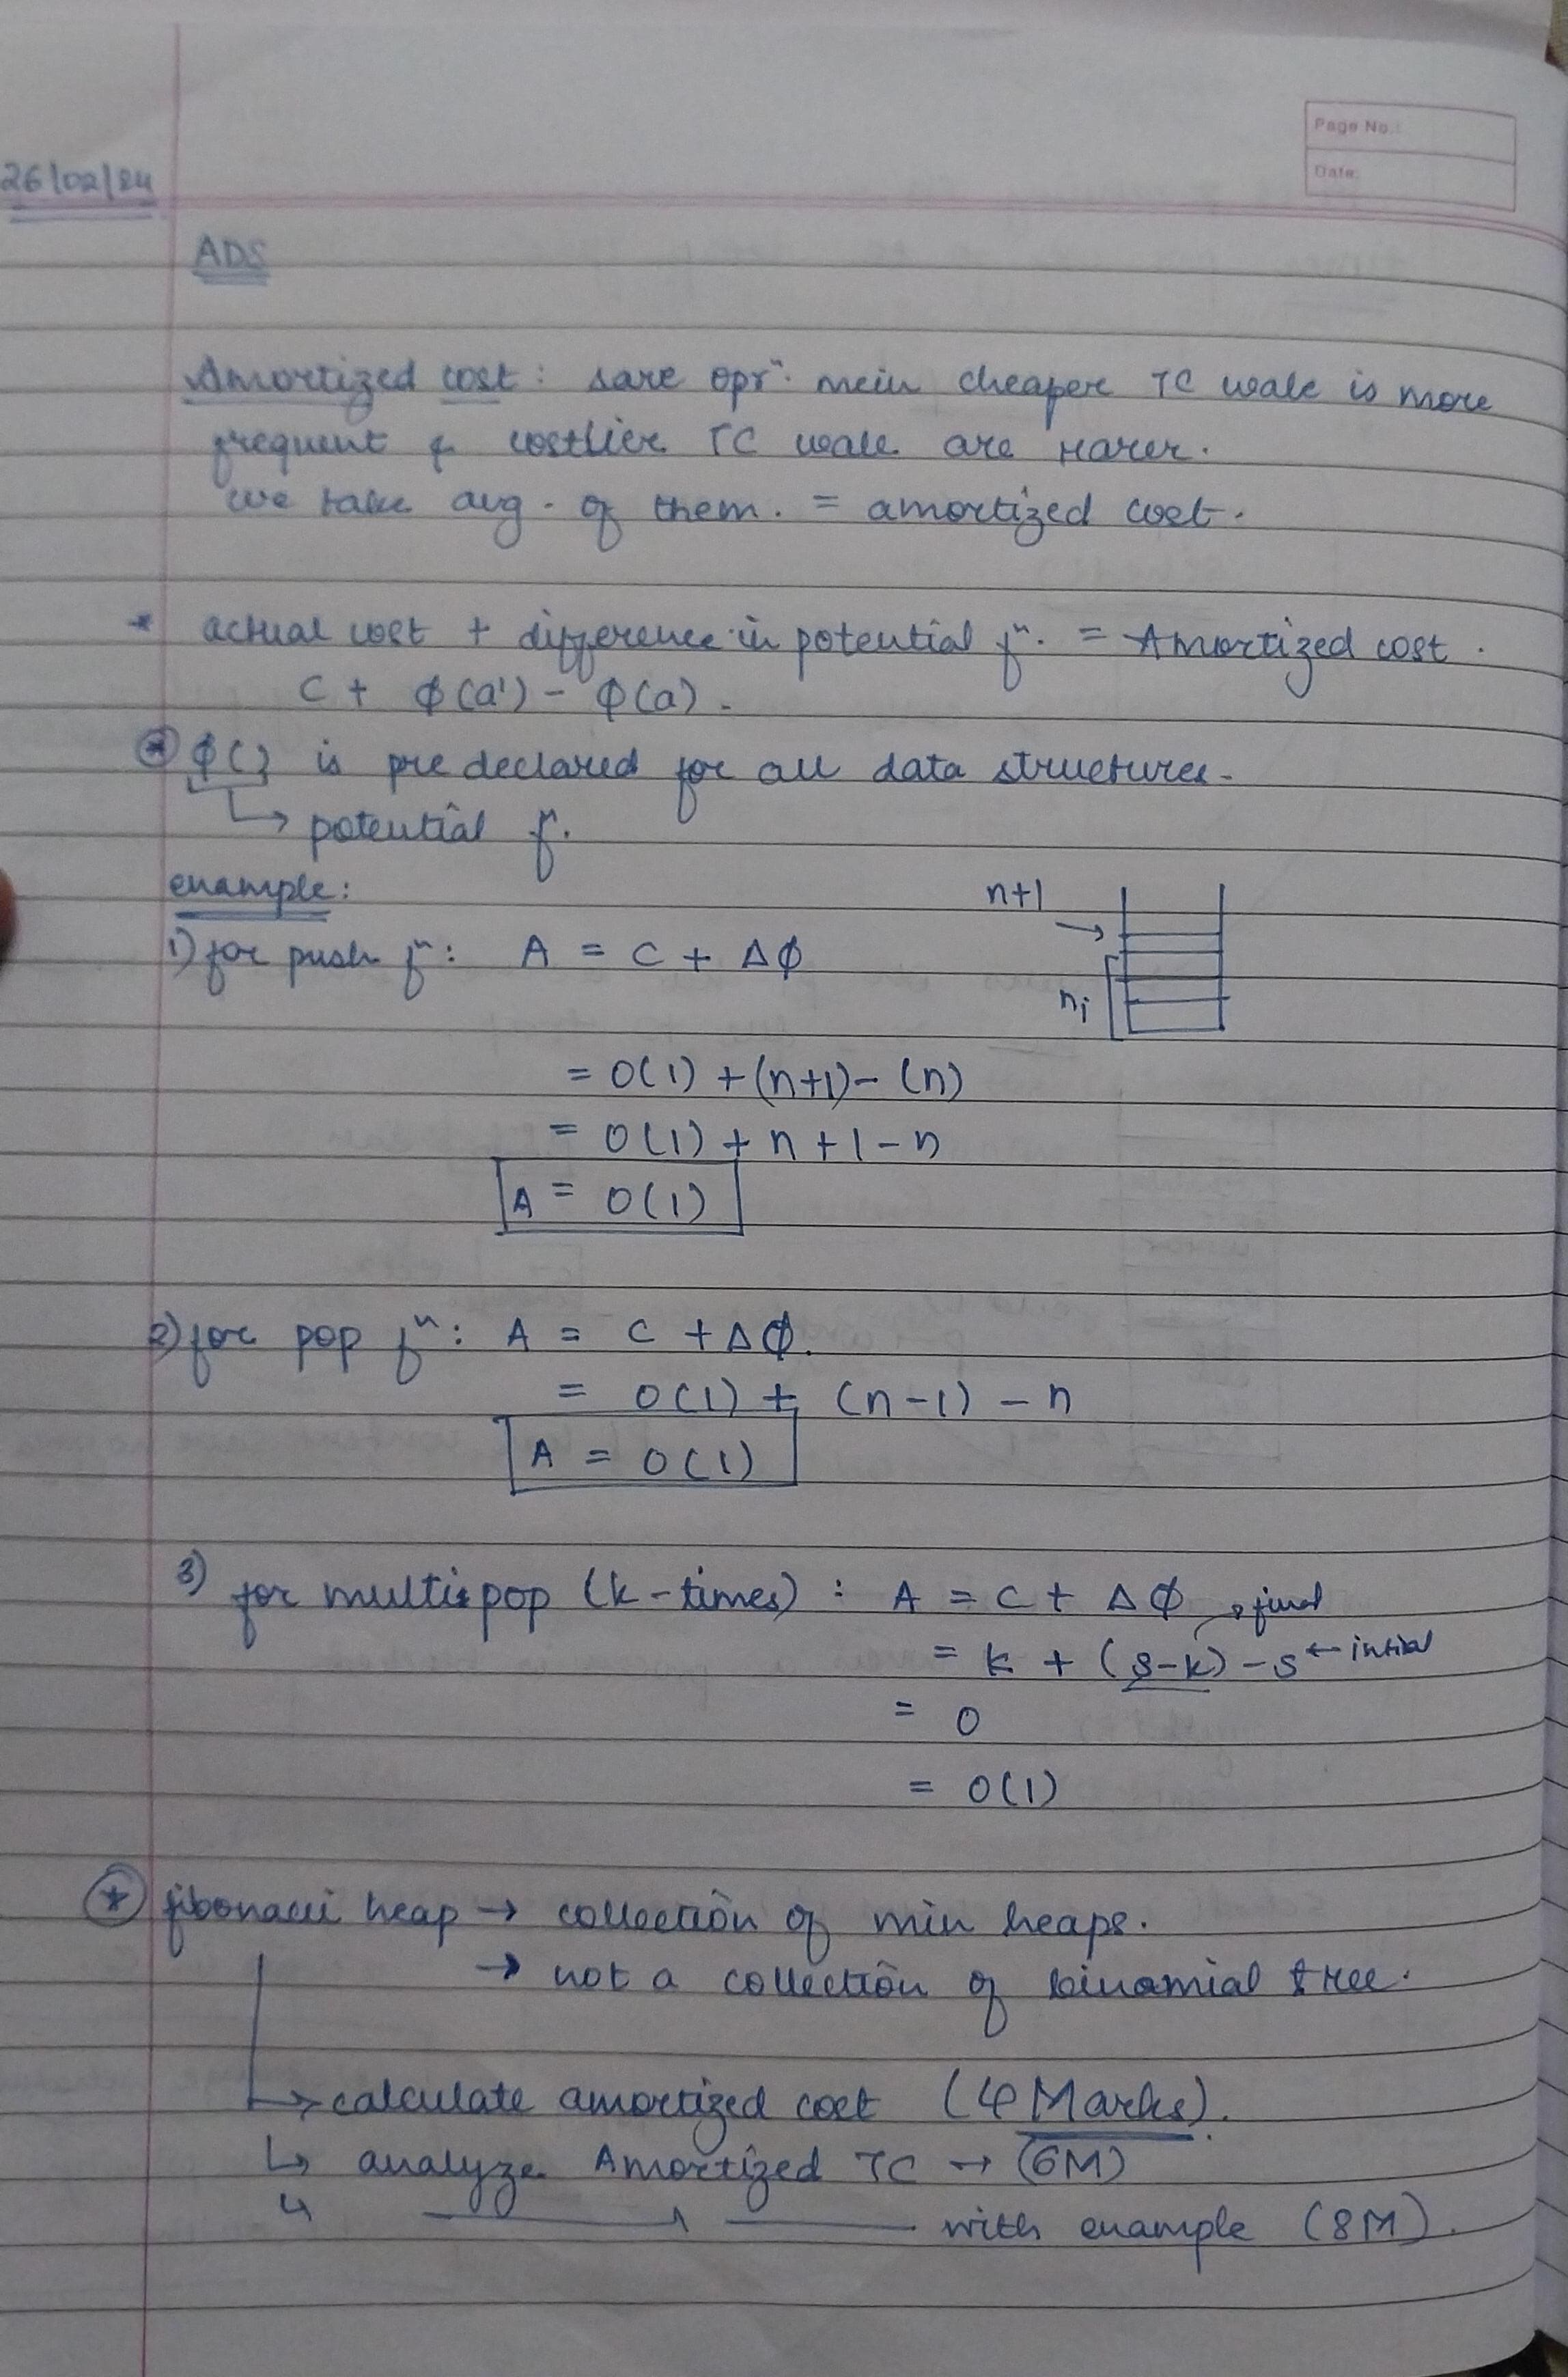 Page No.:
Date:
26/02/24
ADS
Amortized cost : sare oprⁿ. mein cheaper TC wale is more
frequent & costlier TC wale are rarer.
we take avg. of them. = amortized cost.
* actual cost + difference in potential fⁿ. = Amortized cost.
C + ϕ(a') - ϕ(a).
* ϕ() is pre declared for all data structures.
↳ potential fⁿ.
example:
n+1 →
1) for push fⁿ: A = C + Δϕ
ni
= O(1) + (n+1) - (n)
= O(1) + n + 1 - n
A = O(1)
2) for pop fⁿ: A = C + Δϕ.
= O(1) + (n-1) - n
A = O(1)
3) for multipop (k-times) : A = C + Δϕ → final
= k + (s-k) - s ← intial
= 0
= O(1)
* fibonacci heap → collection of min heaps.
→ not a collection of binomial tree.
↳ calculate amortized cost (4 Marks).
↳ analyze Amortized TC → (6M)
↳ —— —— with example (8M).